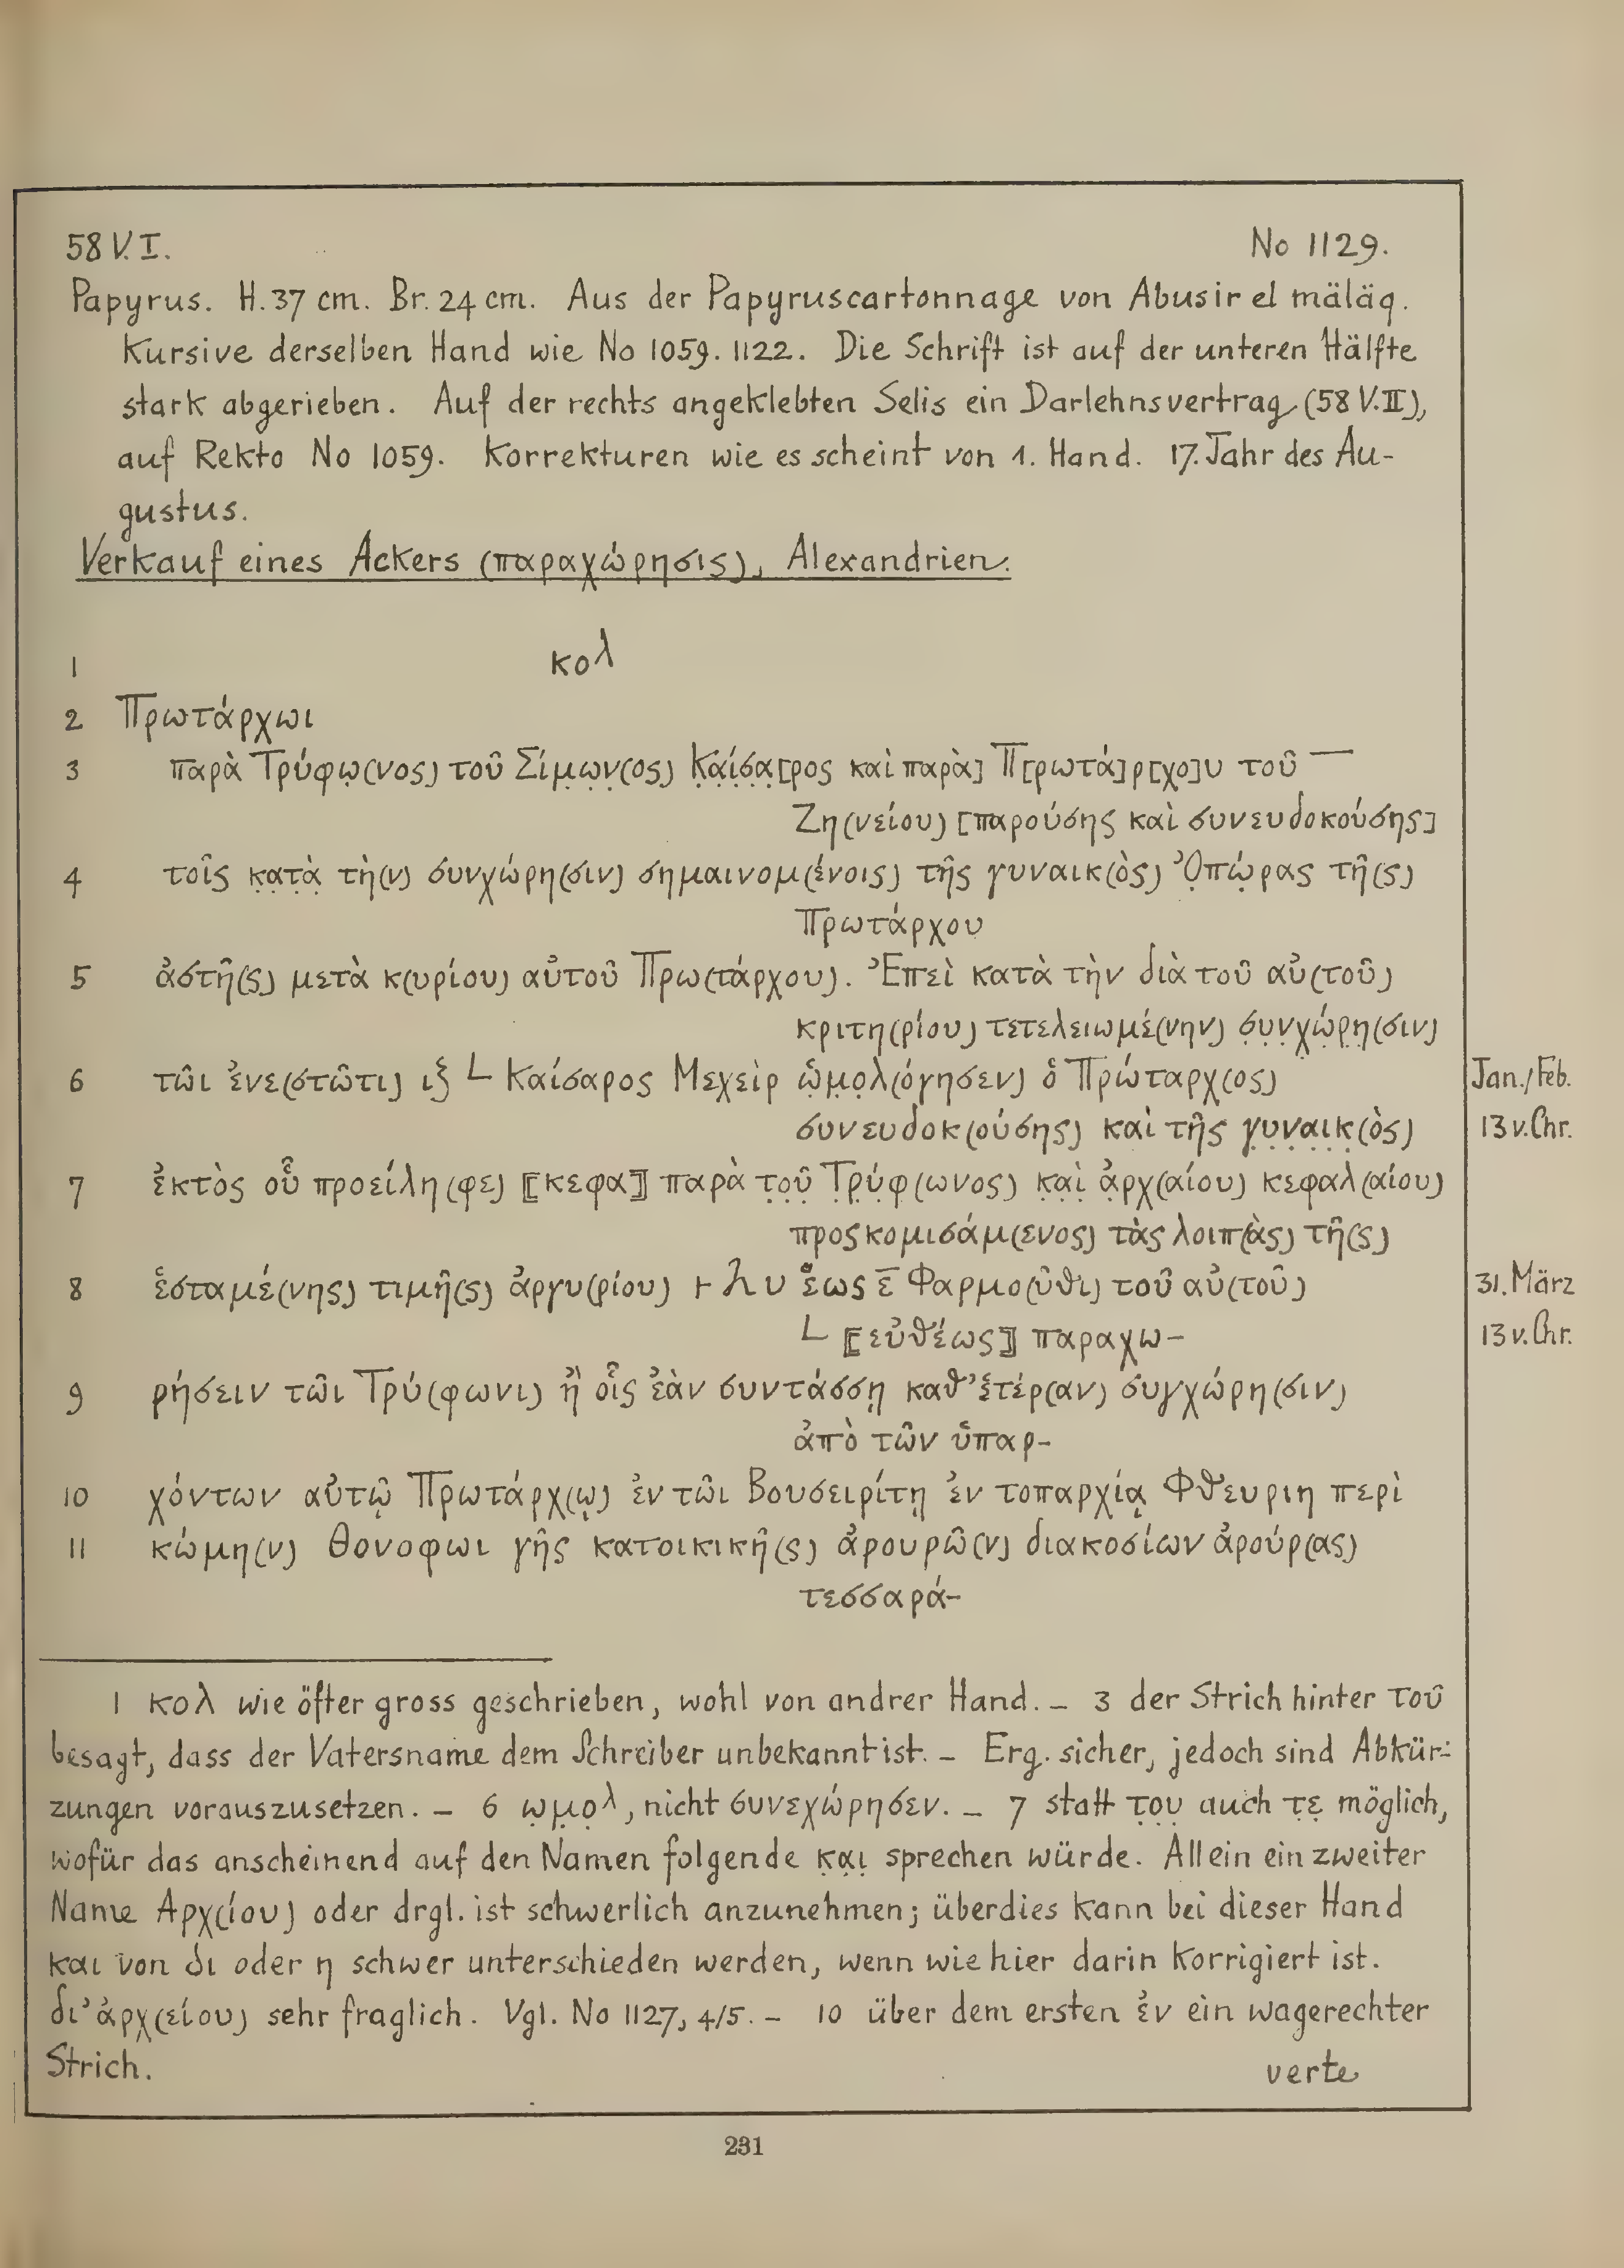 58 V. I. No 1129.
Papyrus. H. 37 cm. Br. 24 cm. Aus der Papyruscartonnage von Abusir el mäläq.
Kursive derselben Hand wie No 1059. 1122. Die Schrift ist auf der unteren Hälfte
stark abgerieben. Auf der rechts angeklebten Selis ein Darlehnsvertrag (58 V. II),
auf Rekto No 1059. Korrekturen wie es scheint von 1. Hand. 17. Jahr des Au-
gustus.
Verkauf eines Ackers (παραχώρησις), Alexandrien.
1 κολ
2 Πρωτάρχωι
3 παρὰ Τρύφω̣(νος) τοῦ Σίμ̣ω̣ν̣(ος) Κ̣α̣ί̣σ̣α̣[ρος καὶ παρὰ] Π[ρωτά]ρ[χο]υ τοῦ —
Ζη(νείου) [παρούσης καὶ συνευδοκούσης]
4 τοῖς κ̣α̣τ̣ὰ̣ τὴ(ν) συνχώρη(σιν) σημαινομ(ένοις) τῆς γυναικ(ὸς) Ὀ̣πώ̣ρας τῆ(ς)
Πρωτάρχου
5 ἀστῆ(ς) μετὰ κ(υρίου) αὐτοῦ Πρω(τάρχου). Ἐπεὶ κατὰ τὴν διὰ τοῦ αὐ(τοῦ)
κριτη(ρίου) τετελειωμέ(νην) σ̣υ̣ν̣χ̣ώ̣ρ̣η̣(σιν)
6 τῶι ἐνε(στῶτι) ιξ L Καίσαρος Μεχεὶρ ὡ̣μ̣ο̣λ(όγησεν) ὁ Πρώταρχ(ος) Jan./Feb.
συνευδοκ(ούσης) καὶ τῆς γ̣υ̣ν̣α̣ι̣κ̣(ὸς) 13 v. Chr.
7 ἐκτὸς οὗ προείλη(φε) ⟦κεφα⟧ παρὰ τ̣ο̣ῦ̣ Τ̣ρ̣ύ̣φ̣(ωνος) κ̣α̣ὶ̣ ἀ̣ρχ(αίου) κεφαλ(αίου)
προσκομισάμ(ενος) τὰς λοιπ(ὰς) τῆ(ς)
8 ἑσταμέ(νης) τιμῆ(ς) ἀργυ(ρίου) 𐅂 λ υ ἕως ε̅ Φαρμο(ῦθι) τοῦ αὐ(τοῦ) 31. März
L ⟦εὐθέως⟧ παραχω- 13 v. Chr.
9 ρήσειν τῶι Τρύ(φωνι) ἢ οἷς ἐὰν συντάσσῃ καθ’ ἑτέρ(αν) συγχώρη(σιν)
ἀπὸ τῶν ὑπαρ-
10 χόντων αὐτῷ Πρωτάρχ(ῳ) ἐν τῶι Βουσειρίτῃ ἐν τοπαρχίᾳ Φθευριη περὶ
11 κώμη(ν) Θονοφωι γῆς κατοικικῆ(ς) ἀρουρῶ(ν) διακοσίων ἀρούρ(ας)
τεσσαρά-
1 κολ wie öfter gross geschrieben, wohl von andrer Hand. – 3 der Strich hinter τοῦ
besagt, dass der Vatersname dem Schreiber unbekannt ist. – Erg. sicher, jedoch sind Abkür-
zungen vorauszusetzen. – 6 ω̣μ̣ο̣λ, nicht συνεχώρησεν. – 7 statt τ̣ο̣υ̣ auch τ̣ε̣ möglich,
wofür das anscheinend auf den Namen folgende κ̣α̣ι̣ sprechen würde. Allein ein zweiter
Name Αρχ(ίου) oder drgl. ist schwerlich anzunehmen; überdies kann bei dieser Hand
και von δι oder η schwer unterschieden werden, wenn wie hier darin korrigiert ist.
δι’ ἀρχ(είου) sehr fraglich. Vgl. No 1127, 4/5. – 10 über dem ersten ἐν ein wagerechter
Strich. verte
231